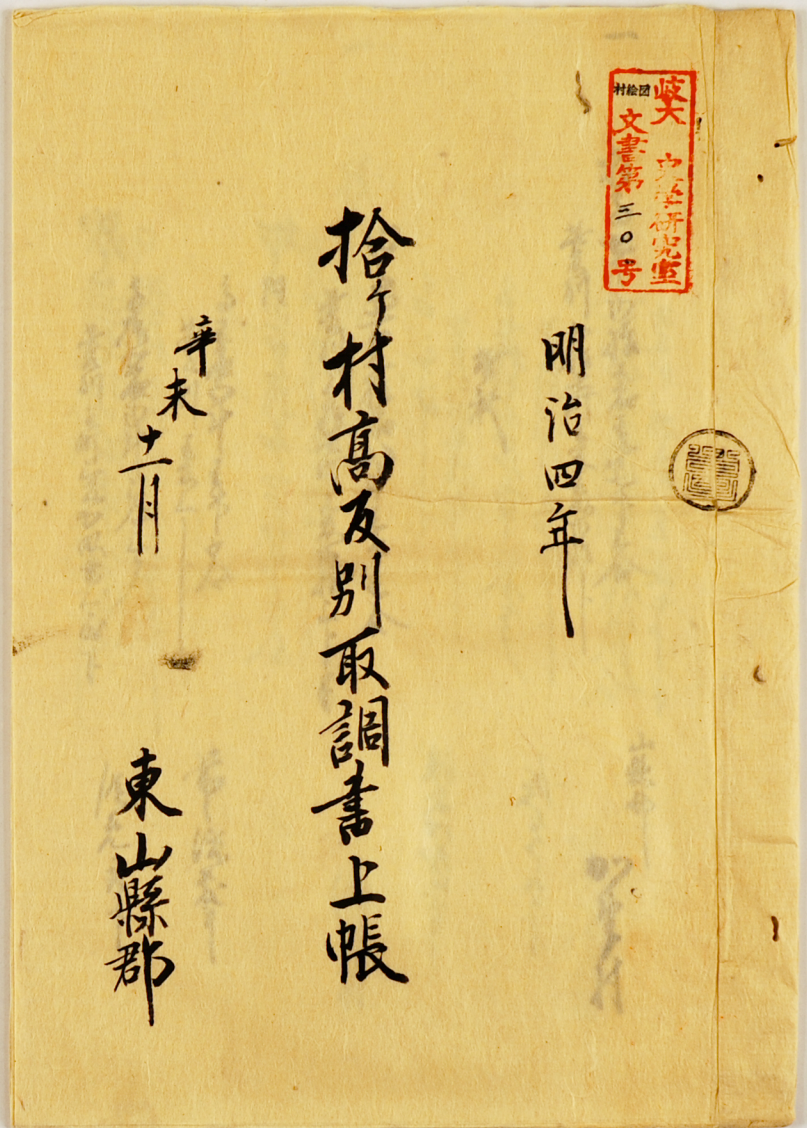 岐大 史学研究室
村絵図
文書第三〇号
明治四年
拾ヶ村高反別取調書上帳
辛未十一月
東山縣郡